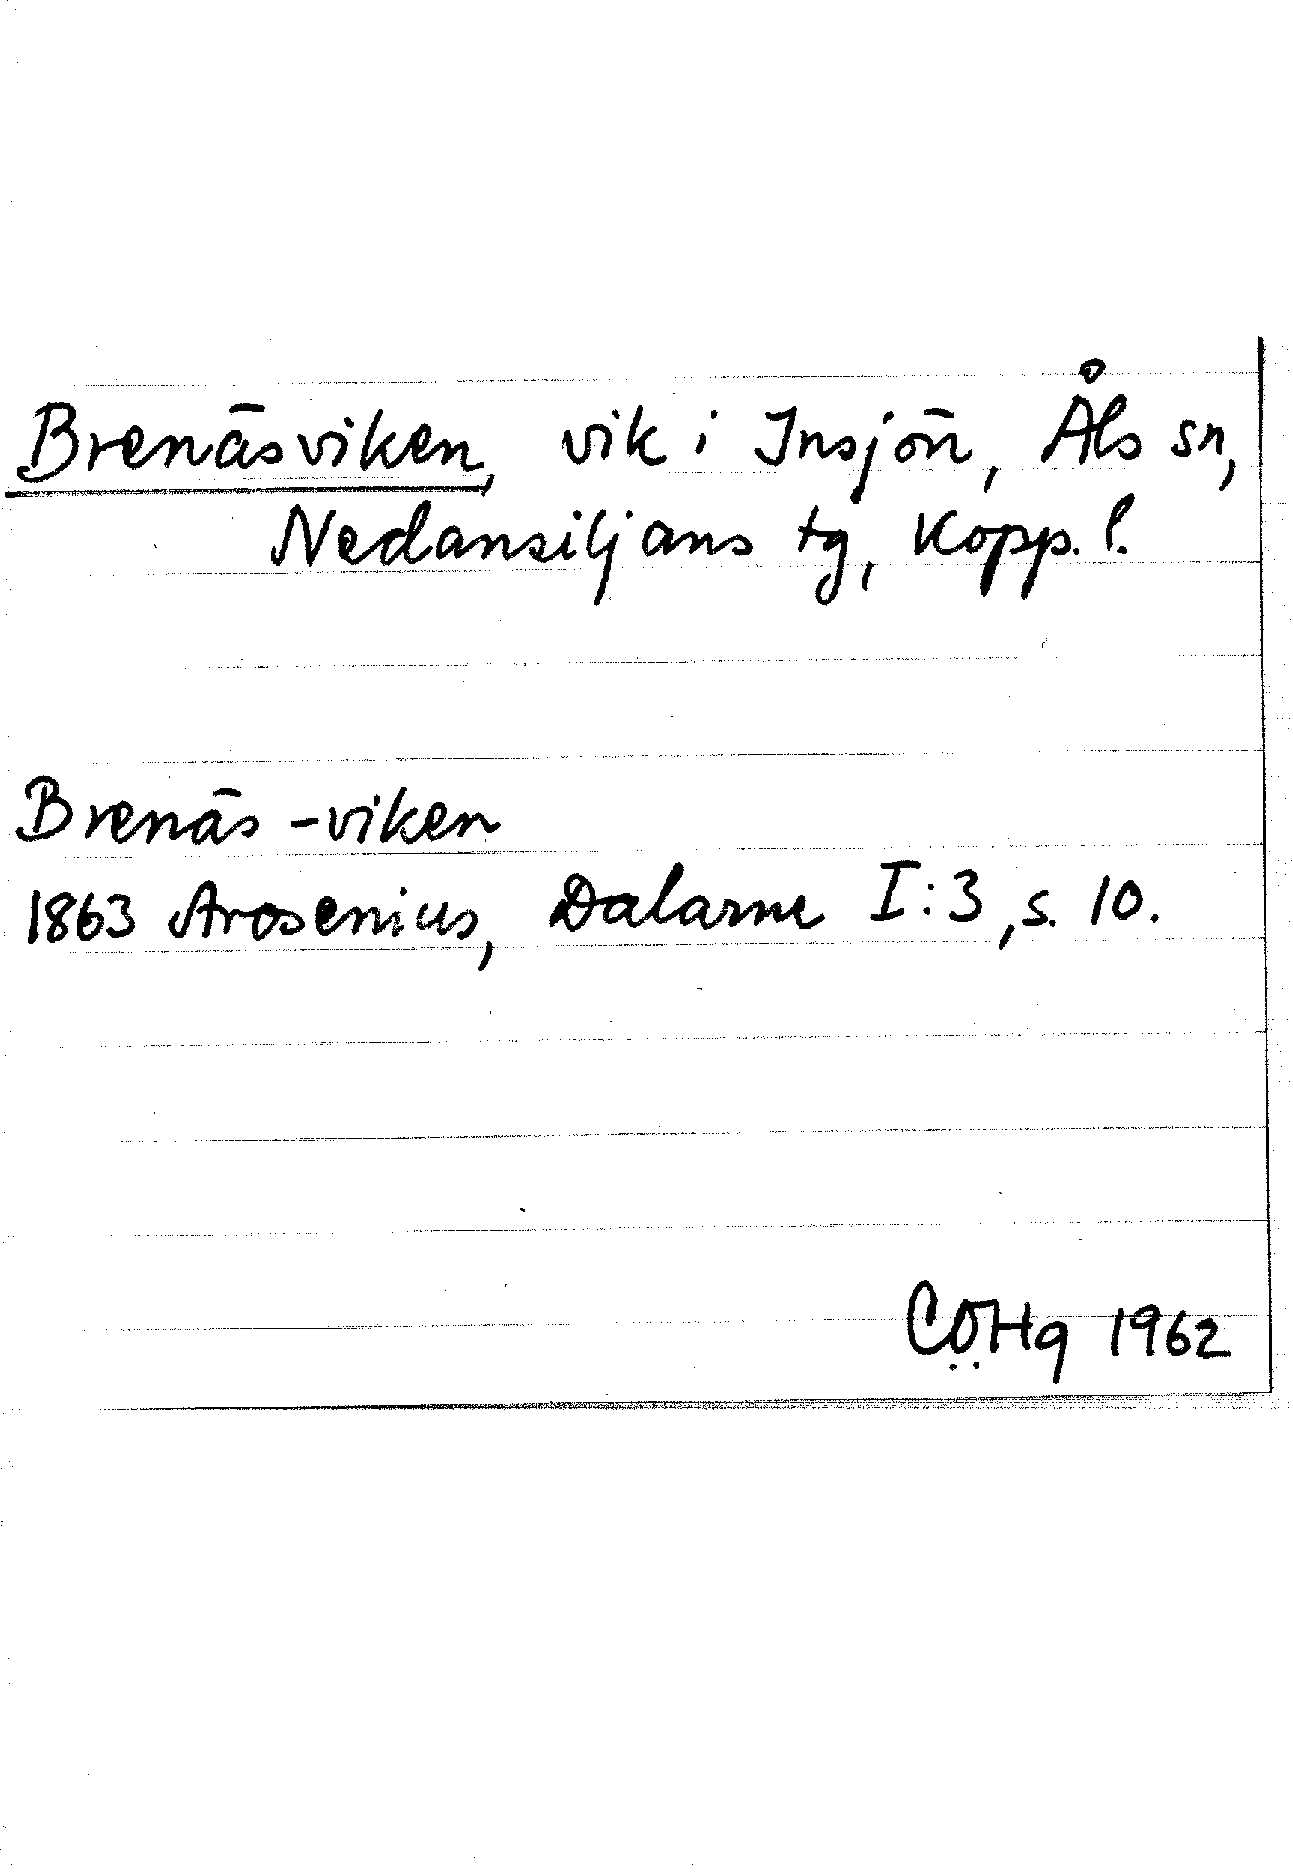 Brenäsviken, vik i Insjön, Åls sn,
Nedansiljans tg, Kopp. l.
Brenäs-viken
1863 Arosenius, Dalarne I:3, s. 10.
CÖHg 1962